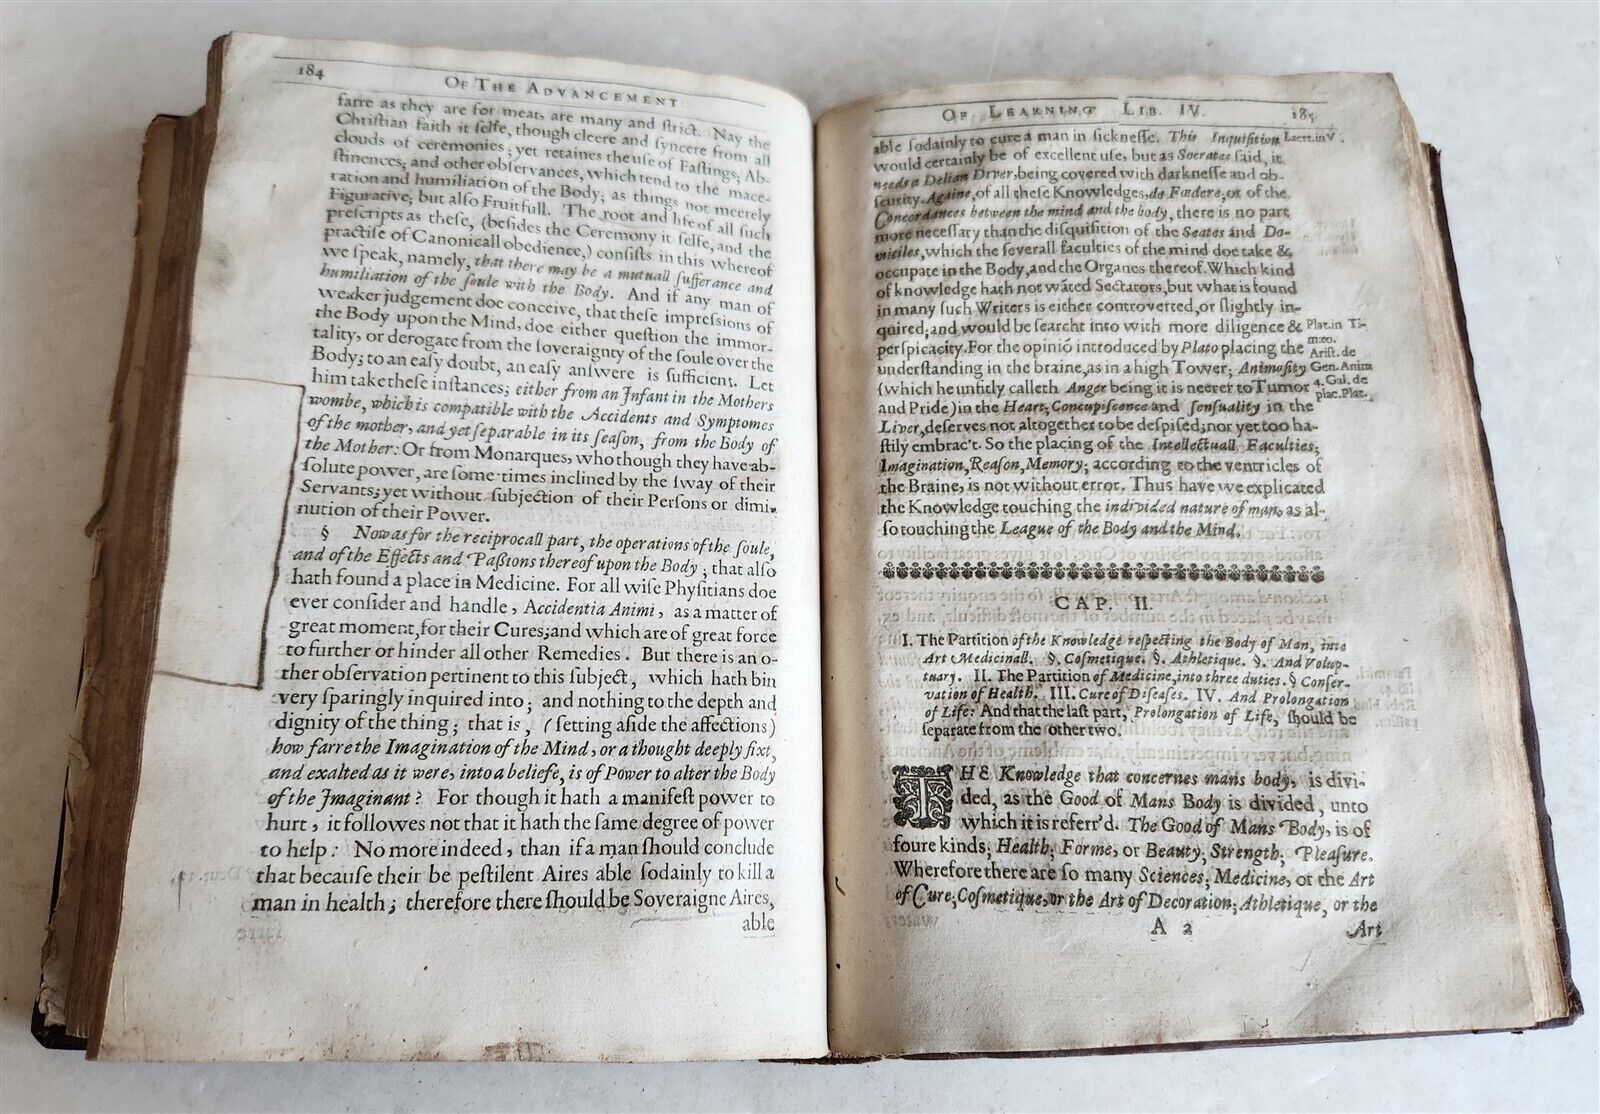 184
OF THE ADVANCEMENT
farre as they are for meat, are many and strict. Nay the
Christian faith it selfe, though cleere and syncere from all
clouds of ceremonies; yet retaines the use of Fastings, Ab-
stinences; and other observances, which tend to the mace-
ration and humiliation of the Body; as things not meerely
Figurative, but also Fruitfull. The root and life of all such
prescripts as these, (besides the Ceremony it selfe, and the
practise of Canonicall obedience,) consists in this whereof
we speak, namely, that there may be a mutuall sufferance and
humiliation of the soule with the Body. And if any man of
weaker judgement doe conceive, that these impressions of
the Body upon the Mind, doe either question the immor-
tality, or derogate from the soveraignty of the soule over the
Body; to an easy doubt, an easy answere is sufficient. Let
him take these instances; either from an Infant in the Mothers
wombe, which is compatible with the Accidents and Symptomes
of the mother, and yet separable in its season, from the Body of
the Mother: Or from Monarques, who though they have ab-
solute power, are some-times inclined by the sway of their
Servants; yet without subjection of their Persons or dimi-
nution of their Power.
§ Now as for the reciprocall part, the operations of the soule,
and of the Effects and Passions thereof upon the Body; that also
hath found a place in Medicine. For all wise Physitians doe
ever consider and handle, Accidentia Animi, as a matter of
great moment, for their Cures; and which are of great force
to further or hinder all other Remedies. But there is an o-
ther observation pertinent to this subject, which hath bin
very sparingly inquired into; and nothing to the depth and
dignity of the thing; that is, (setting aside the affections)
how farre the Imagination of the Mind, or a thought deeply fixt,
and exalted as it were, into a beliefe, is of Power to alter the Body
of the Imaginant? For though it hath a manifest power to
hurt, it followes not that it hath the same degree of power
to help: No more indeed, than if a man should conclude
that because their be pestilent Aires able sodainly to kill a
man in health; therefore there should be Soveraigne Aires,
able
OF LEARNING LIB. IV. 185
able sodainly to cure a man in sicknesse. This Inquisition Laert. in V.
would certainly be of excellent use, but as Socrates said, it
needs a Delian Diver, being covered with darknesse and ob-
scurity. Againe, of all these Knowledges, de Fœdere, or of the
Concordances between the mind and the body, there is no part
more necessary than the disquisition of the Seates and Do-
miciles, which the severall faculties of the mind doe take &
occupate in the Body, and the Organes thereof. Which kind
of knowledge hath not wāted Sectators, but what is found
in many such Writers is either controverted, or slightly in-
quired; and would be searcht into with more diligence & Plat. in Ti-
perspicacity. For the opiniō introduced by Plato placing the mæo. Arist. de
understanding in the braine, as in a high Tower; Animosity Gen. Anima
(which he unfitly calleth Anger being it is neerer to Tumor 4. Gal. de
and Pride) in the Heart; Concupiscence and sensuality in the plac. Plat.
Liver, deserves not altogether to be despised; nor yet too ha-
stily embrac't. So the placing of the Intellectuall Faculties;
Imagination, Reason, Memory; according to the ventricles of
the Braine, is not without error. Thus have we explicated
the Knowledge touching the individed nature of man, as al-
so touching the League of the Body and the Mind.
CAP. II.
I. The Partition of the Knowledge respecting the Body of Man, into
Art Medicinall. §. Cosmetique. §. Athletique. §. And Volup-
tuary. II. The Partition of Medicine, into three duties. § Conser-
vation of Health. III. Cure of Diseases. IV. And Prolongation
of Life: And that the last part, Prolongation of Life, should be
separate from the other two.
THE Knowledge that concernes mans body, is divi-
ded, as the Good of Mans Body is divided, unto
which it is referr'd. The Good of Mans Body, is of
foure kinds; Health; Forme, or Beauty; Strength; Pleasure.
Wherefore there are so many Sciences; Medicine, or the Art
of Cure; Cosmetique, or the Art of Decoration; Athletique, or the
A 2 Art